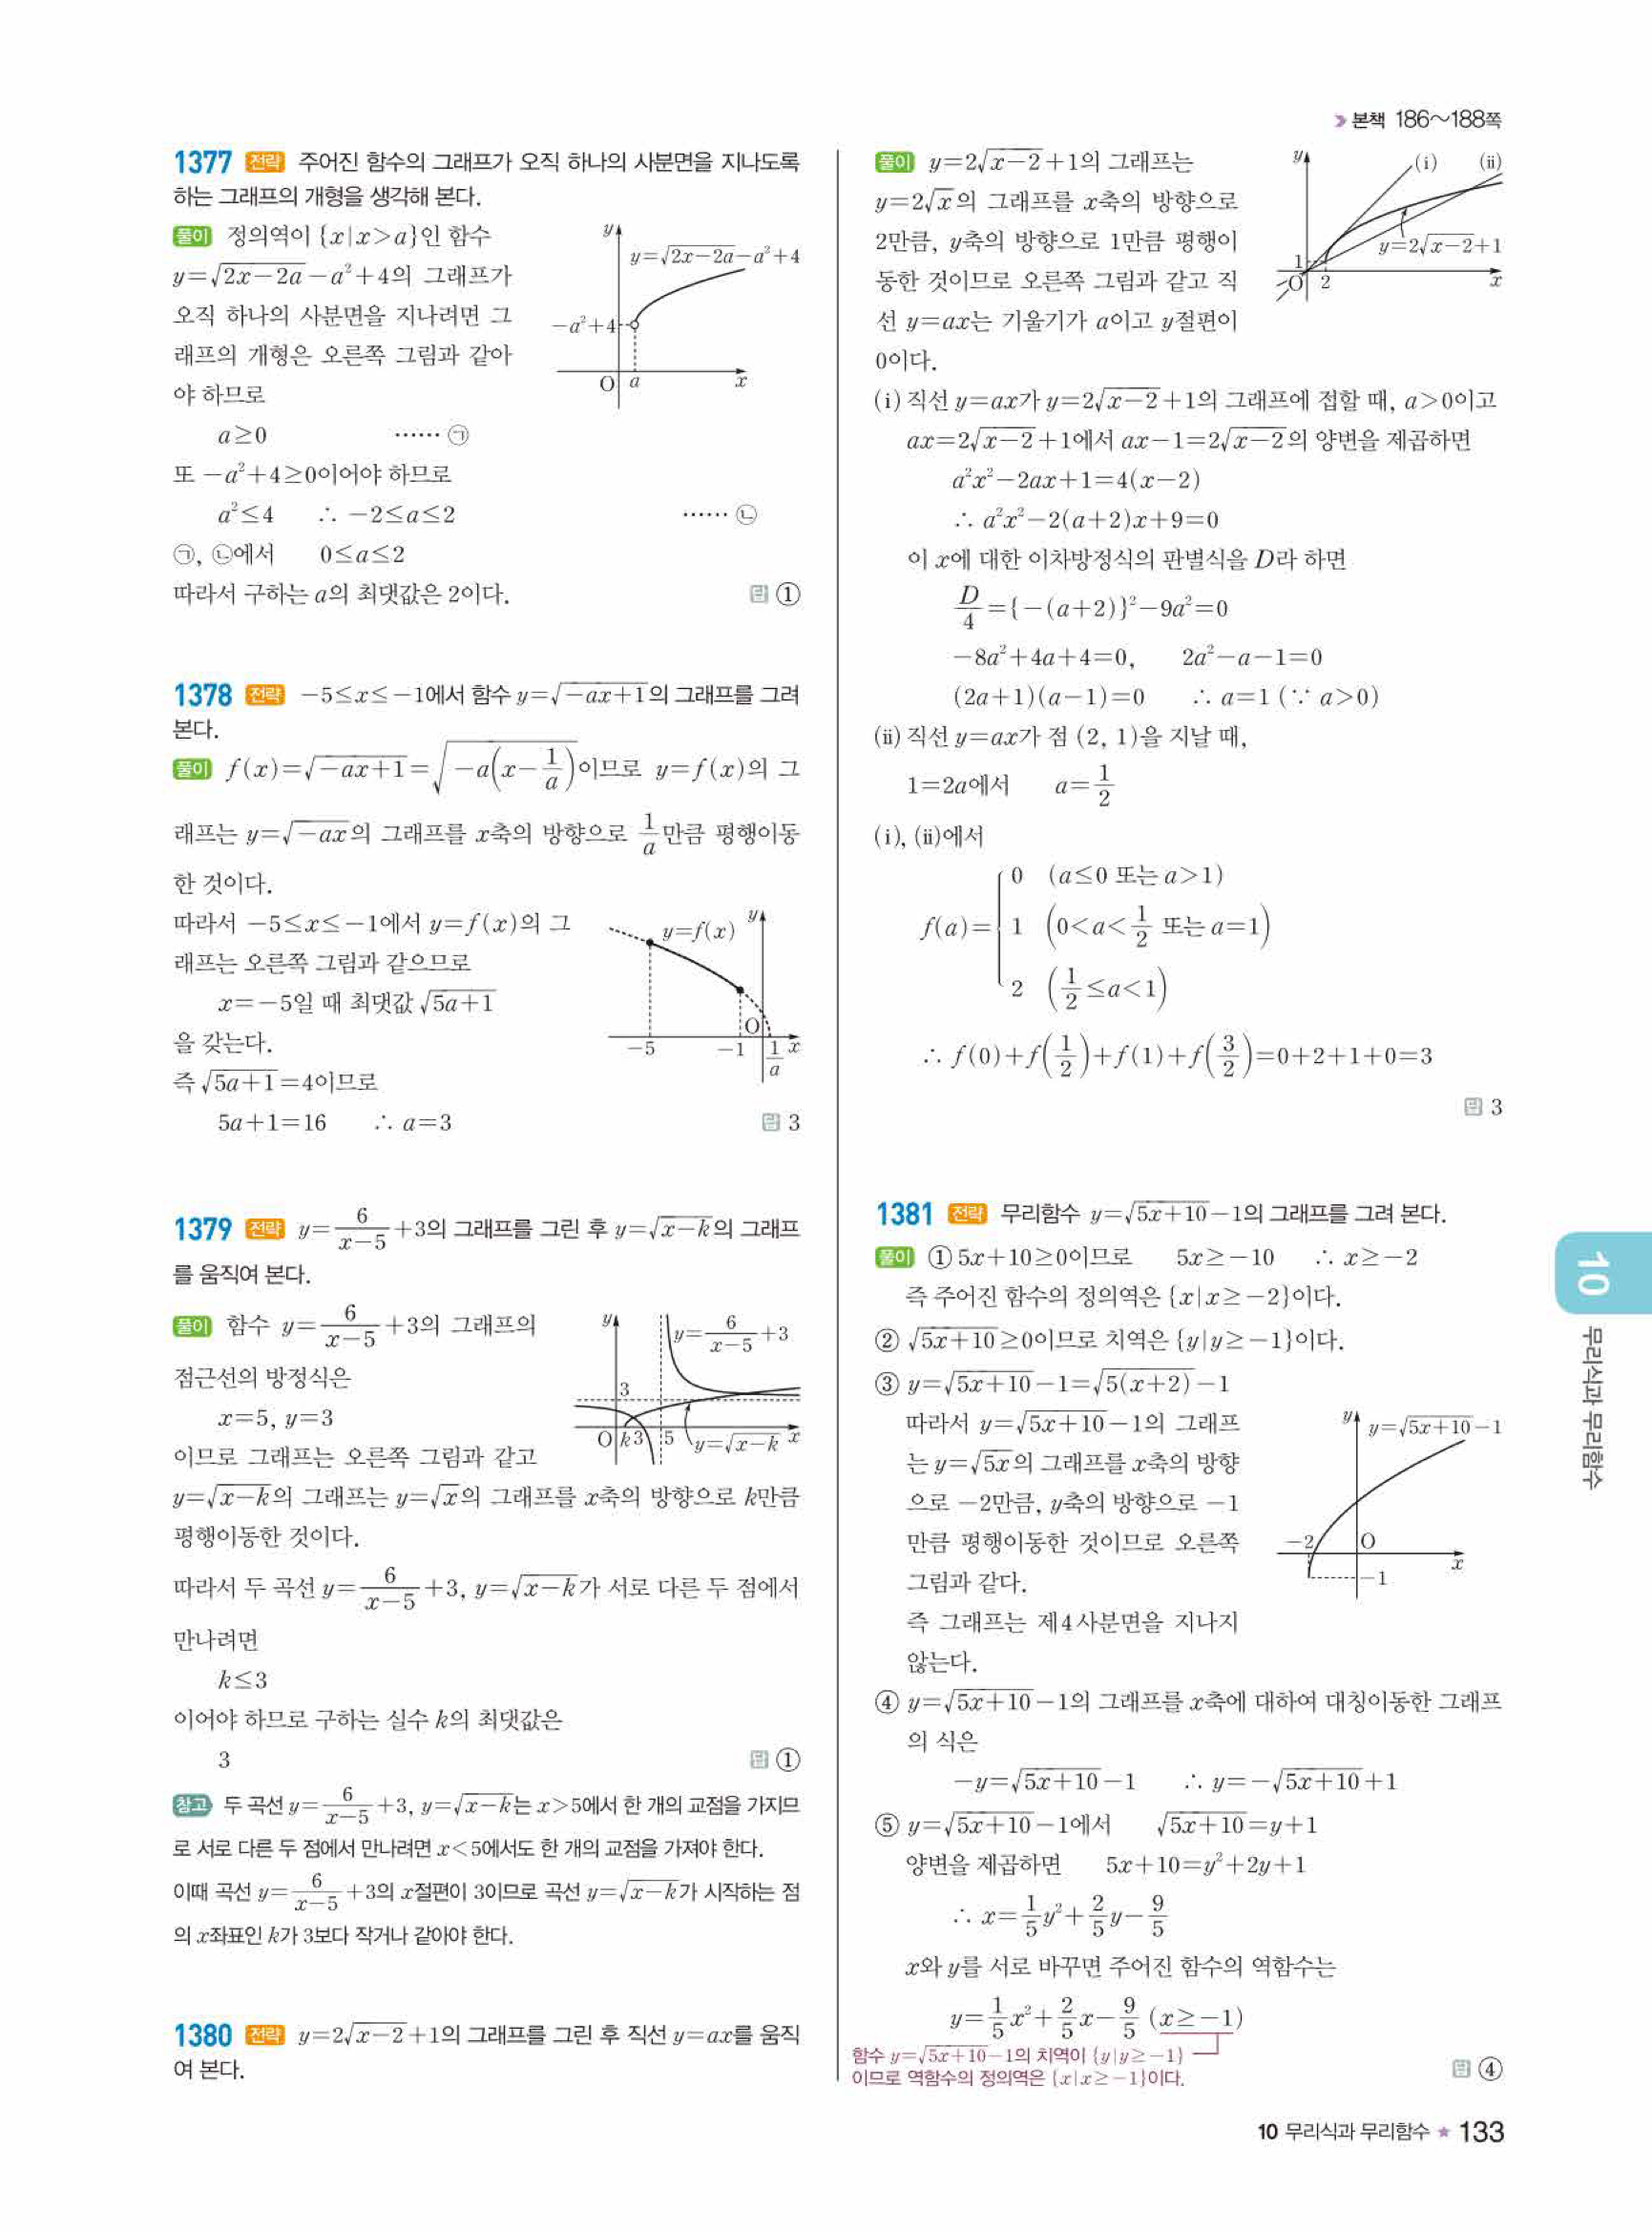 본책 186~188쪽
1377 전략 주어진 함수의 그래프가 오직 하나의 사분면을 지나도록
하는 그래프의 개형을 생각해 본다.
풀이 정의역이 {x|x>a}인 함수
y=√(2x-2a)-a²+4의 그래프가
오직 하나의 사분면을 지나려면 그
래프의 개형은 오른쪽 그림과 같아
야 하므로
y
y=√(2x-2a)-a²+4
-a²+4
O a x
a≥0 …… ㉠
또 -a²+4≥0이어야 하므로
a²≤4 ∴ -2≤a≤2 …… ㉡
㉠, ㉡에서 0≤a≤2
따라서 구하는 a의 최댓값은 2이다.
답 ①
1378 전략 -5≤x≤-1에서 함수 y=√(-ax+1)의 그래프를 그려
본다.
풀이 f(x)=√(-ax+1)=√(-a(x-1/a))이므로 y=f(x)의 그
래프는 y=√(-ax)의 그래프를 x축의 방향으로 1/a만큼 평행이동
한 것이다.
따라서 -5≤x≤-1에서 y=f(x)의 그
래프는 오른쪽 그림과 같으므로
x=-5일 때 최댓값 √(5a+1)
을 갖는다.
즉 √(5a+1)=4이므로
5a+1=16 ∴ a=3
y=f(x) y
O
-5 -1 1/a x
답 3
1379 전략 y=6/(x-5)+3의 그래프를 그린 후 y=√(x-k)의 그래프
를 움직여 본다.
풀이 함수 y=6/(x-5)+3의 그래프의
점근선의 방정식은
x=5, y=3
이므로 그래프는 오른쪽 그림과 같고
y y=6/(x-5)+3
3
O k 3 5 y=√(x-k) x
y=√(x-k)의 그래프는 y=√x의 그래프를 x축의 방향으로 k만큼
평행이동한 것이다.
따라서 두 곡선 y=6/(x-5)+3, y=√(x-k)가 서로 다른 두 점에서
만나려면
k≤3
이어야 하므로 구하는 실수 k의 최댓값은
3
답 ①
참고 두 곡선 y=6/(x-5)+3, y=√(x-k)는 x>5에서 한 개의 교점을 가지므
로 서로 다른 두 점에서 만나려면 x<5에서도 한 개의 교점을 가져야 한다.
이때 곡선 y=6/(x-5)+3의 x절편이 3이므로 곡선 y=√(x-k)가 시작하는 점
의 x좌표인 k가 3보다 작거나 같아야 한다.
1380 전략 y=2√(x-2)+1의 그래프를 그린 후 직선 y=ax를 움직
여 본다.
풀이 y=2√(x-2)+1의 그래프는
y=2√x의 그래프를 x축의 방향으로
2만큼, y축의 방향으로 1만큼 평행이
동한 것이므로 오른쪽 그림과 같고 직
선 y=ax는 기울기가 a이고 y절편이
0이다.
y (i) (ii)
y=2√(x-2)+1
1
O 2 x
(i) 직선 y=ax가 y=2√(x-2)+1의 그래프에 접할 때, a>0이고
ax=2√(x-2)+1에서 ax-1=2√(x-2)의 양변을 제곱하면
a²x²-2ax+1=4(x-2)
∴ a²x²-2(a+2)x+9=0
이 x에 대한 이차방정식의 판별식을 D라 하면
D/4={-(a+2)}²-9a²=0
-8a²+4a+4=0, 2a²-a-1=0
(2a+1)(a-1)=0 ∴ a=1 (∵ a>0)
(ii) 직선 y=ax가 점 (2, 1)을 지날 때,
1=2a에서 a=1/2
(i), (ii)에서
f(a)={ 0 (a≤0 또는 a>1)
1 (0<a<1/2 또는 a=1)
2 (1/2≤a<1)
∴ f(0)+f(1/2)+f(1)+f(3/2)=0+2+1+0=3
답 3
1381 전략 무리함수 y=√(5x+10)-1의 그래프를 그려 본다.
풀이 ① 5x+10≥0이므로 5x≥-10 ∴ x≥-2
즉 주어진 함수의 정의역은 {x|x≥-2}이다.
② √(5x+10)≥0이므로 치역은 {y|y≥-1}이다.
③ y=√(5x+10)-1=√(5(x+2))-1
따라서 y=√(5x+10)-1의 그래프
는 y=√(5x)의 그래프를 x축의 방향
으로 -2만큼, y축의 방향으로 -1
만큼 평행이동한 것이므로 오른쪽
그림과 같다.
즉 그래프는 제4사분면을 지나지
않는다.
y y=√(5x+10)-1
-2 O x
-1
④ y=√(5x+10)-1의 그래프를 x축에 대하여 대칭이동한 그래프
의 식은
-y=√(5x+10)-1 ∴ y=-√(5x+10)+1
⑤ y=√(5x+10)-1에서 √(5x+10)=y+1
양변을 제곱하면 5x+10=y²+2y+1
∴ x=1/5y²+2/5y-9/5
x와 y를 서로 바꾸면 주어진 함수의 역함수는
y=1/5x²+2/5x-9/5 (x≥-1)
함수 y=√(5x+10)-1의 치역이 {y|y≥-1}
이므로 역함수의 정의역은 {x|x≥-1}이다.
답 ④
10
무리식과 무리함수
10 무리식과 무리함수 ★ 133